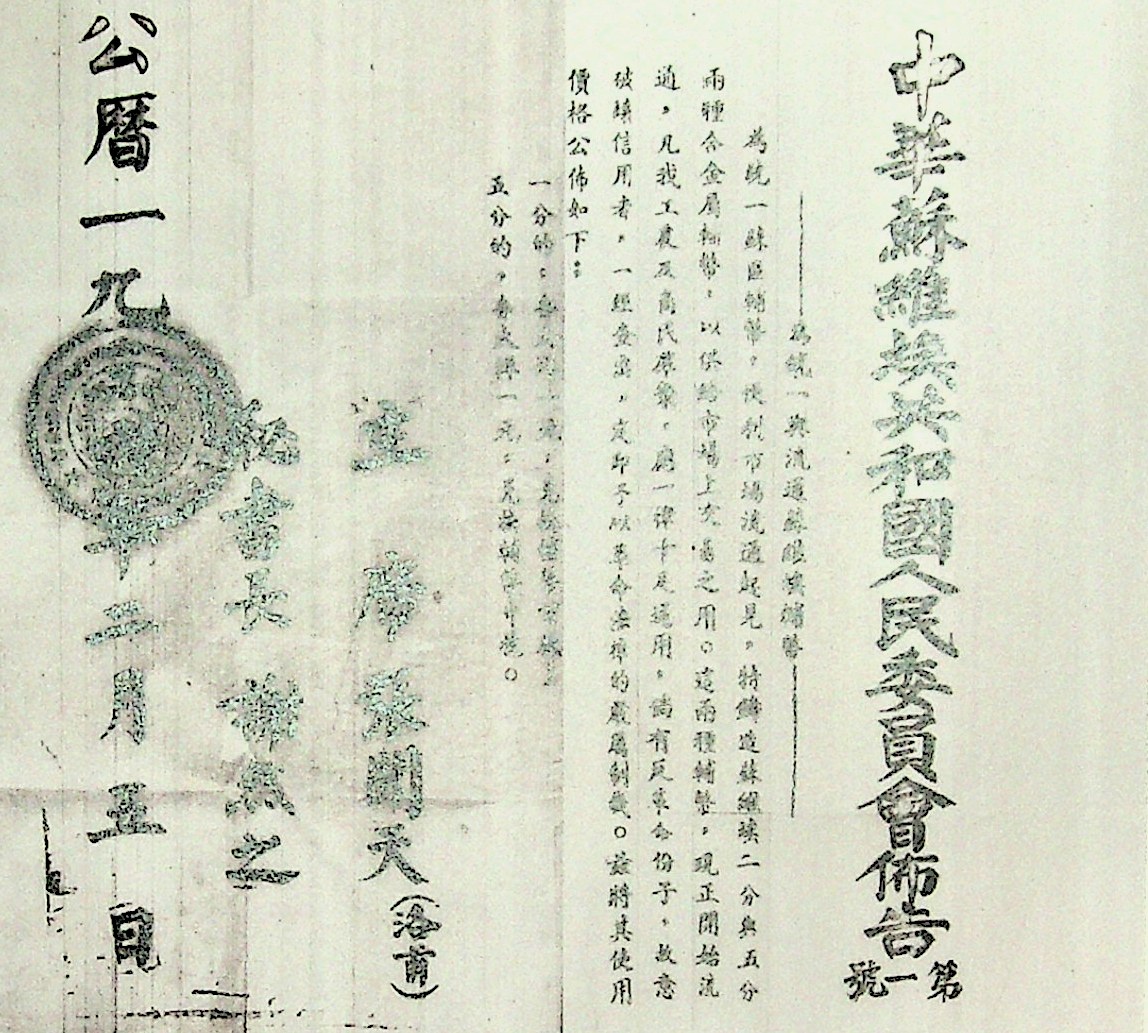 中華蘇維埃共和國人民委員會佈告
第一號
為統一與流通蘇維埃輔幣
為統一蘇區輔幣，便利市場流通起見，特鑄造蘇維埃二分與五分
兩種合金屬輔幣，以供給市場上交易之用。這兩種輔幣，現正開始流
通，凡我工農及商民群眾，應一律十足通用，倘有反革命份子，故意
破壞信用者，一經查出，定即予以革命法律的嚴厲制裁。茲將其使用
價格公佈如下：
一分的，
五分的，每 一元，兌換輔幣 。
主席 張聞天（洛甫）
秘書長 謝然之
公曆一九 年二月五日